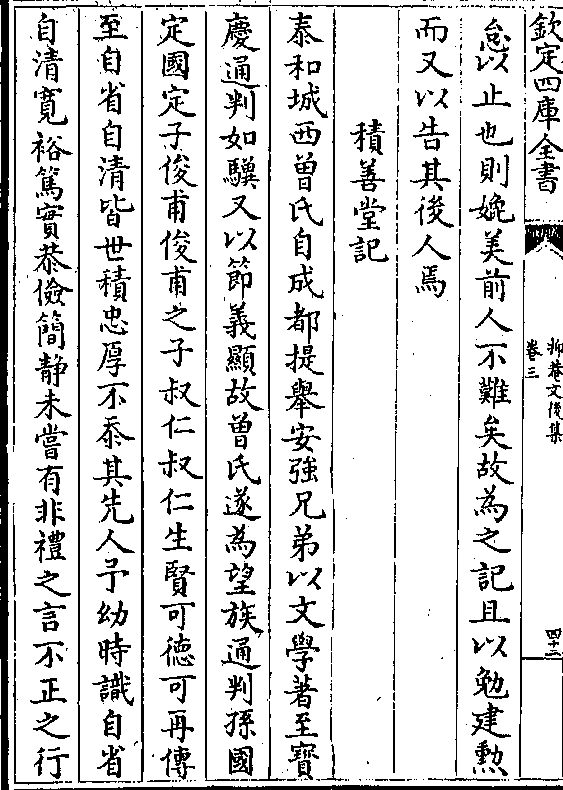 欽定四庫全書
抑菴文後集
卷三
四十二
怠以止也則媲美前人不難矣故為之記且以勉建勲
而又以告其後人焉
積善堂記
泰和城西曾氏自成都提舉安強兄弟以文學著至寳
慶通判如驥又以節義顯故曾氏遂為望族通判孫國
定國定子俊甫俊甫之子叔仁叔仁生賢可徳可再傳
至自省自清皆世積忠厚不忝其先人予幼時識自省
自清寛裕篤實恭儉簡靜未嘗有非禮之言不正之行